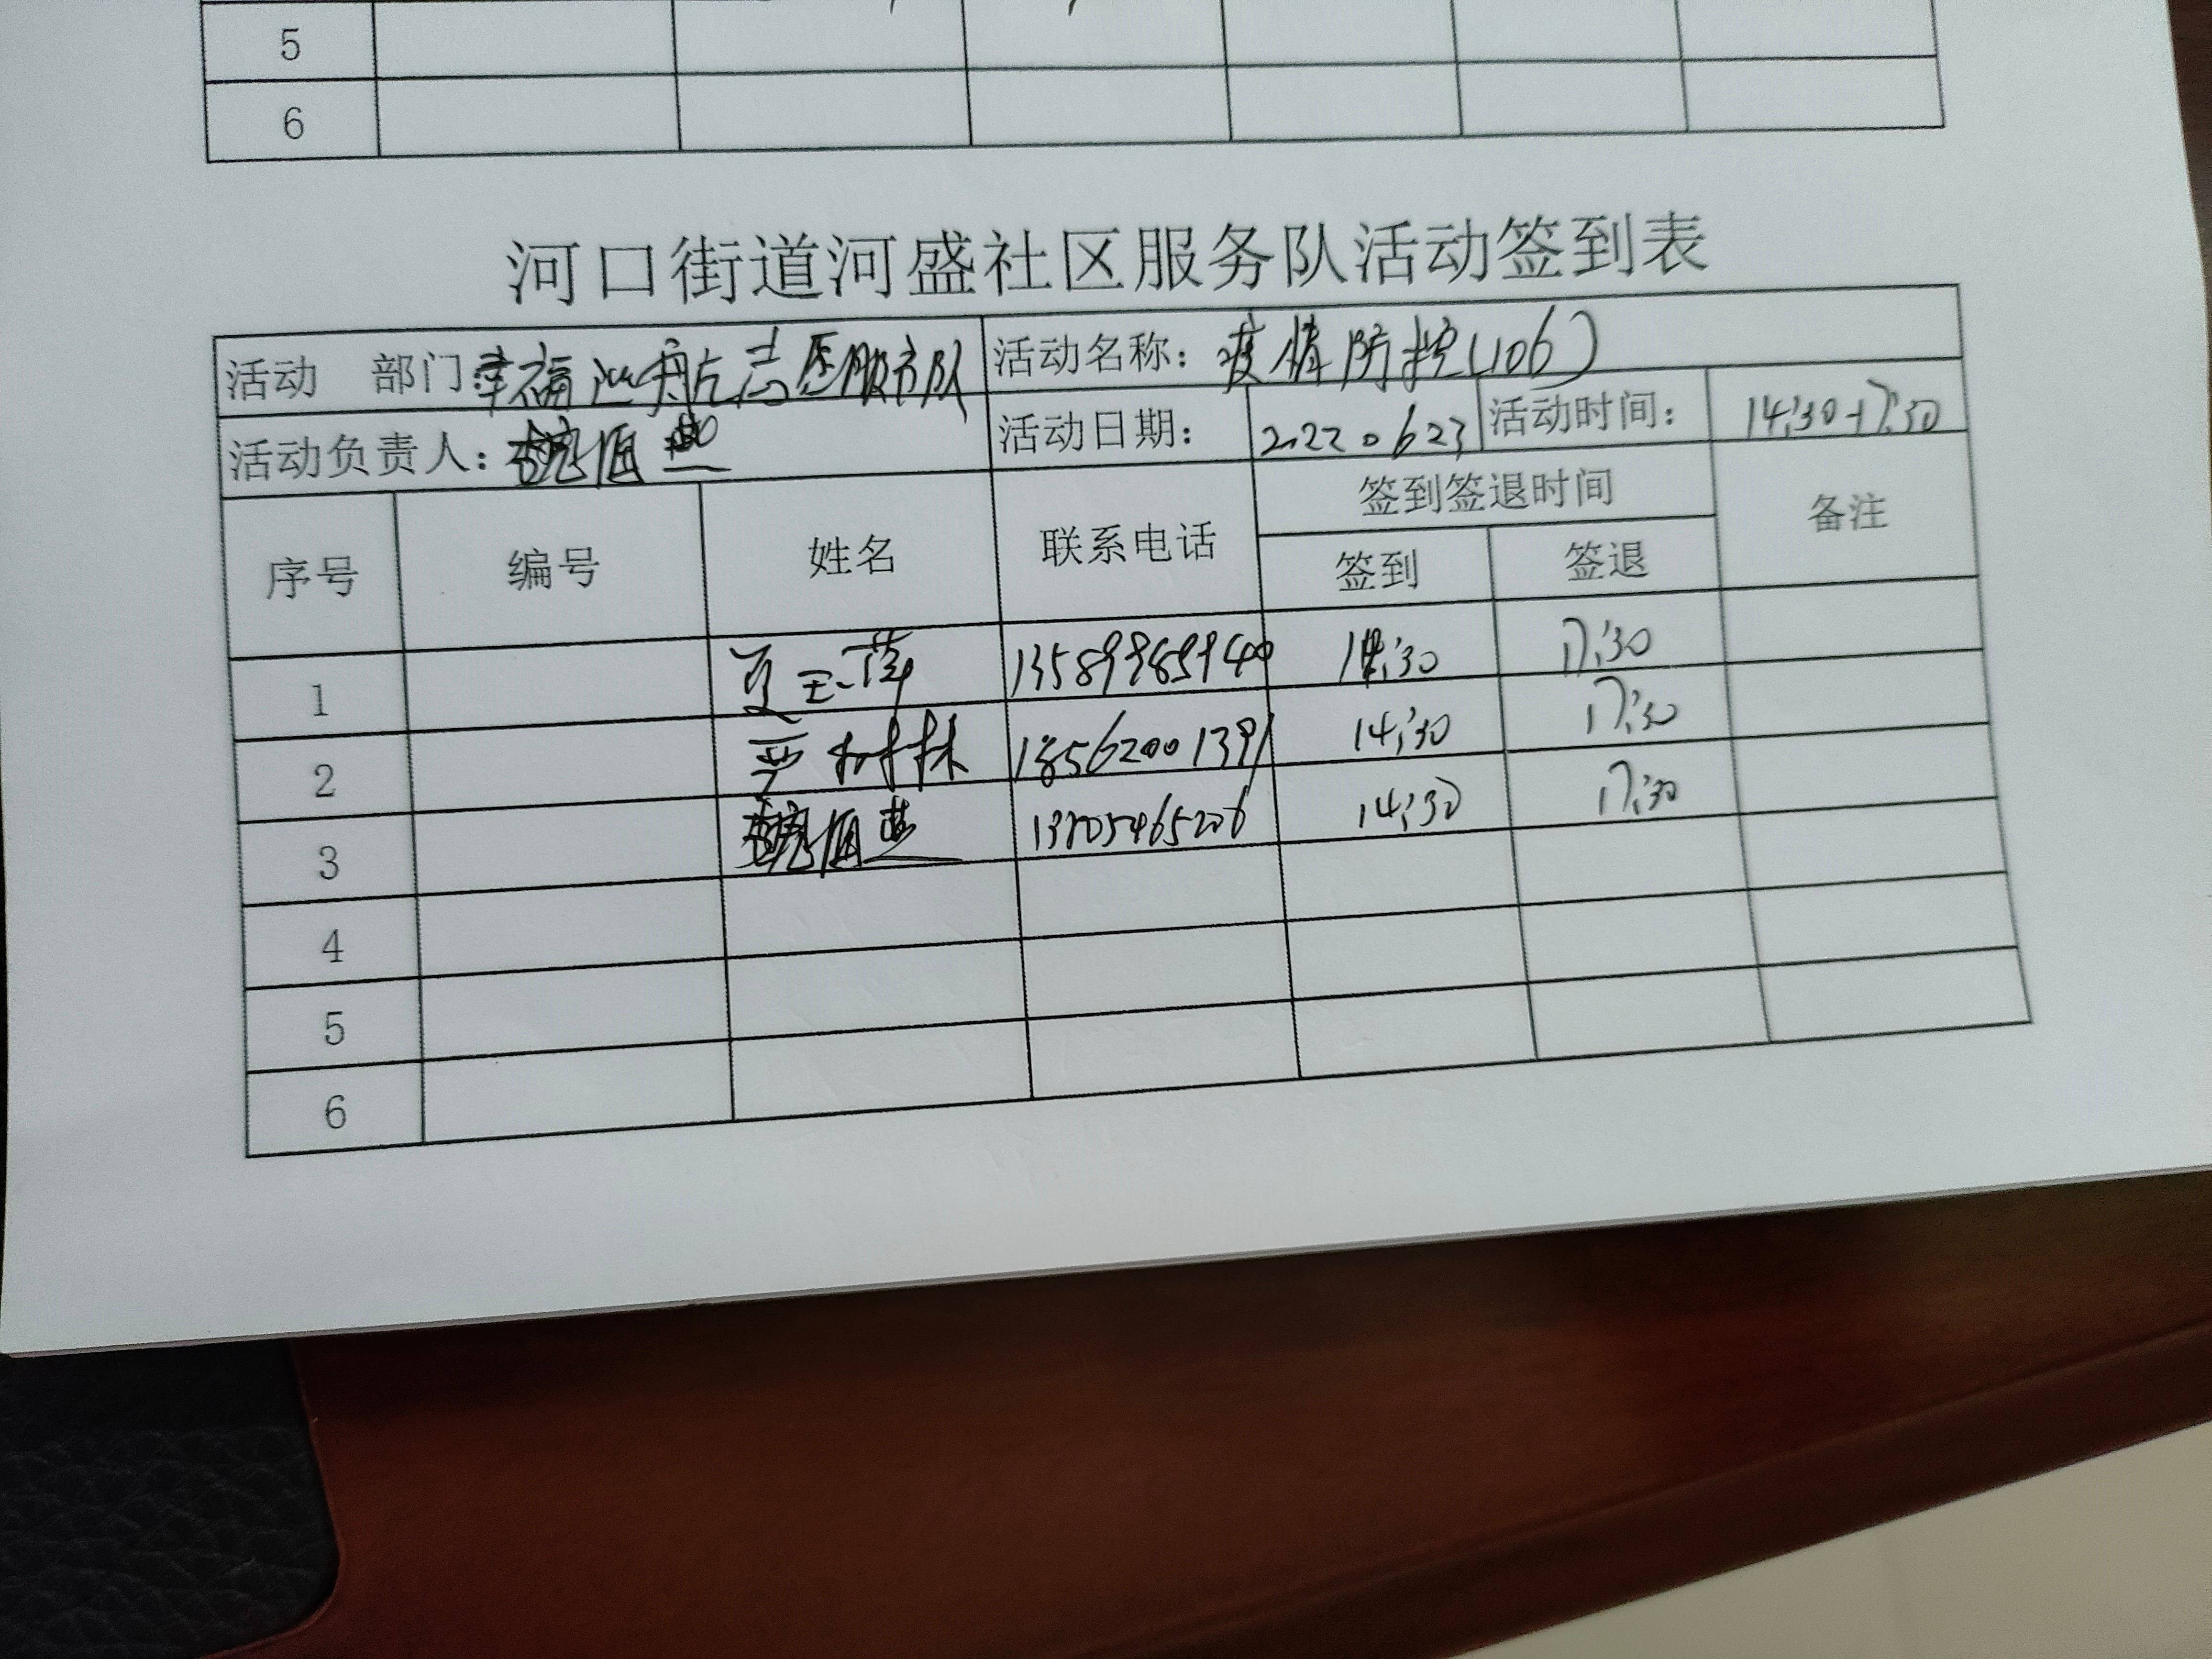 5
6
河口街道河盛社区服务队活动签到表
活动 部门 幸福河口志愿服务队 活动名称：疫情防控(106)
活动负责人： 活动日期： 20220623 活动时间： 14:30-17:30
序号 编号 姓名 联系电话 签到签退时间 备注
签到 签退
1 夏玉萍 13589985940 14:30 17:30
2 严树林 18562001391 14:30 17:30
3 14:30 17:30
4
5
6